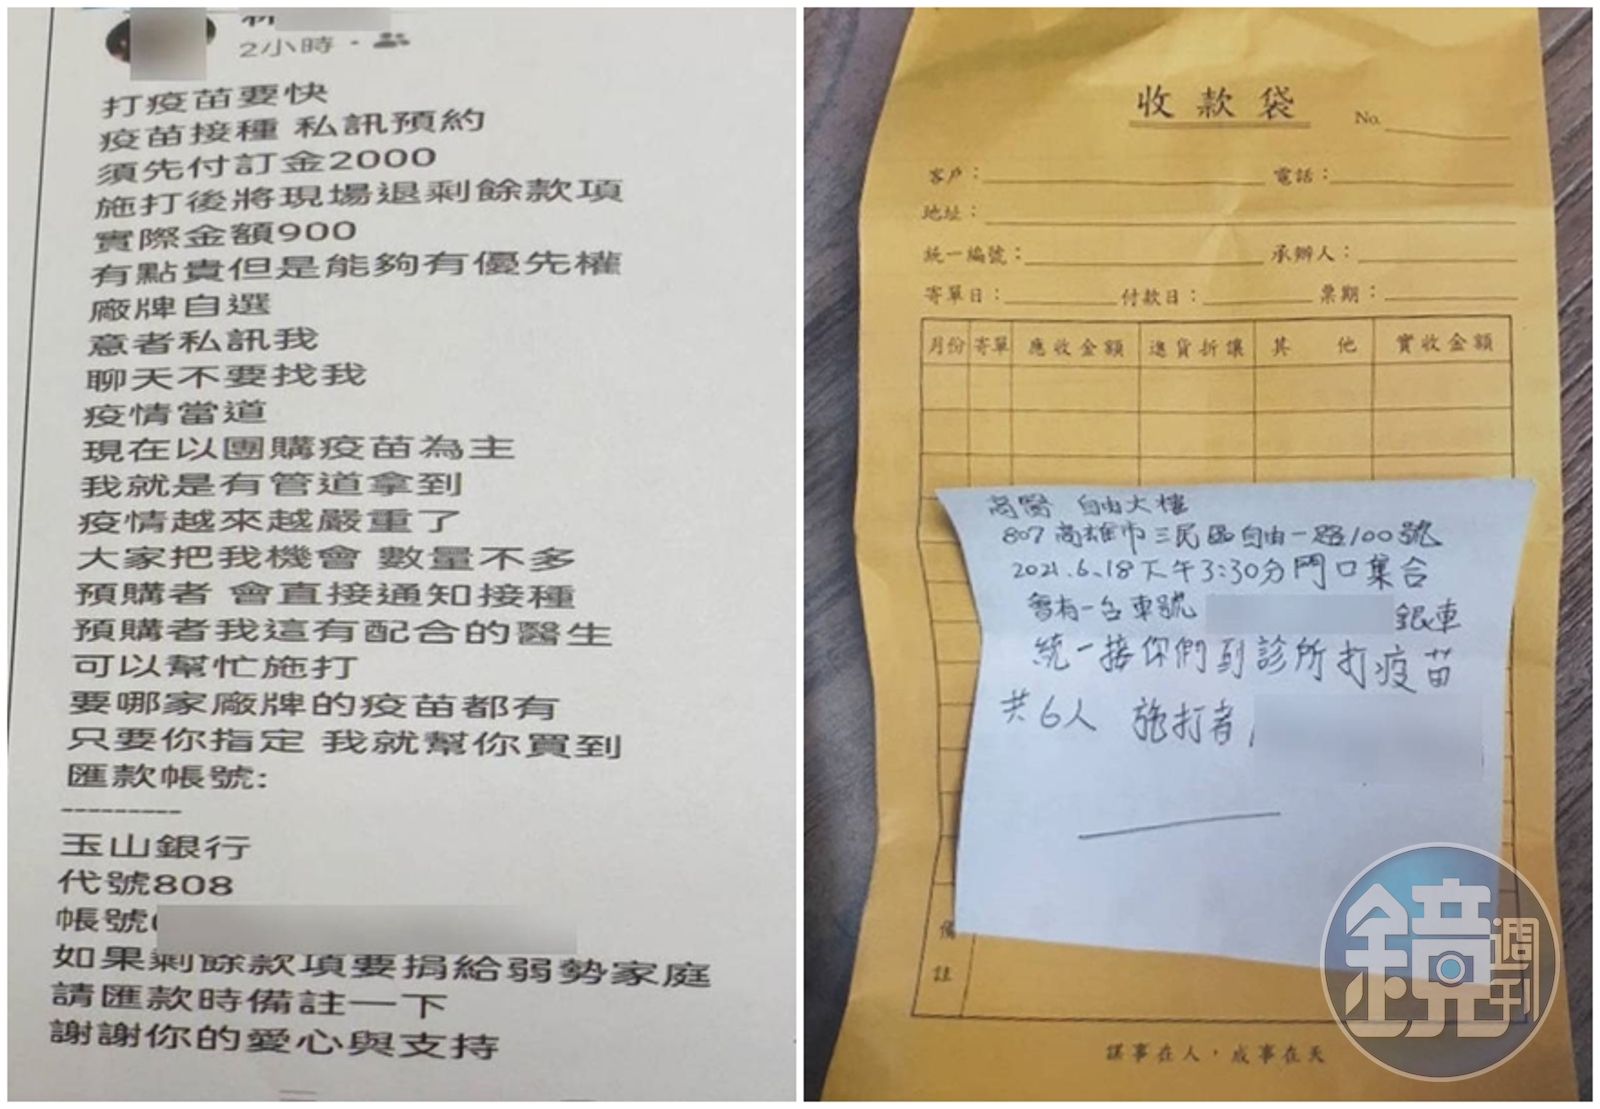 2小時
打疫苗要快
疫苗接種 私訊預約
須先付訂金2000
施打後將現場退剩餘款項
實際金額900
有點貴但是能夠有優先權
廠牌自選
意者私訊我
聊天不要找我
疫情當道
現在以團購疫苗為主
我就是有管道拿到
疫情越來越嚴重了
大家把我機會 數量不多
預購者 會直接通知接種
預購者我這有配合的醫生
可以幫忙施打
要哪家廠牌的疫苗都有
只要你指定 我就幫你買到
匯款帳號:
---------
玉山銀行
代號808
帳號
如果剩餘款項要捐給弱勢家庭
請匯款時備註一下
謝謝你的愛心與支持
收款袋
No.
客戶: 電話:
地址:
統一編號: 承辦人:
寄單日: 付款日: 票期:
月份 寄單 應收金額 進貨折讓 其他 實收金額
高醫 自由大樓
807高雄市三民區自由一路100號
2021.6.18下午3:30分門口集合
會有一台車號 銀車
統一接你們到診所打疫苗
共6人 施打者
備註
謀事在人,成事在天
鏡週刊